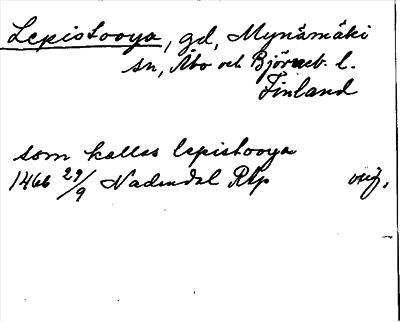 Lepistooya, gd, Mynämäki
sn, Åbo och Björneb. l.
Finland
som kallas lepistooya
1466 29/9 Nadendal Rep orig.